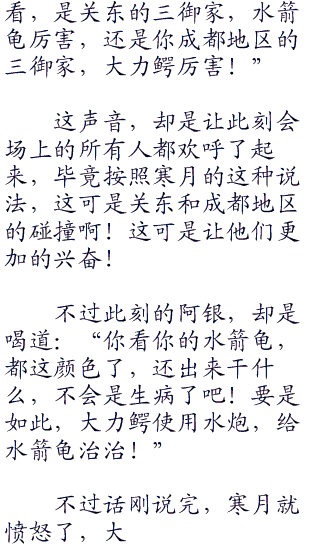 看，是关东的三御家，水箭
龟厉害，还是你成都地区的
三御家，大力鳄厉害！”
这声音，却是让此刻会
场上的所有人都欢呼了起
来，毕竟按照寒月的这种说
法，这可是关东和成都地区
的碰撞啊！这可是让他们更
加的兴奋！
不过此刻的阿银，却是
喝道：“你看你的水箭龟，
都这颜色了，还出来干什
么，不会是生病了吧！要是
如此，大力鳄使用水炮，给
水箭龟治治！”
不过话刚说完，寒月就
愤怒了，大